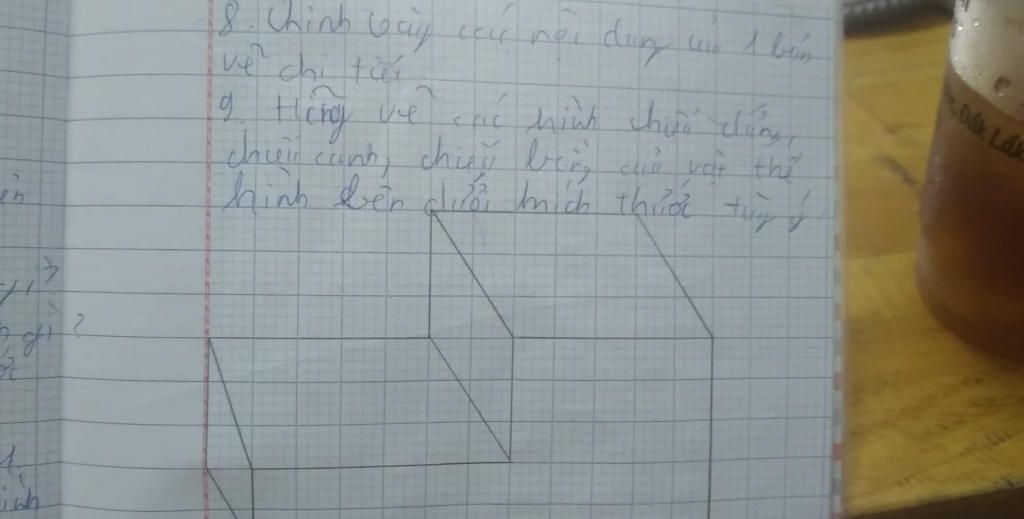 8. Chình bày các nội dung của 1 bản
vẽ chi tiết
9. Hãng vẽ các hình chiếu đứng,
chiếu cạnh, chiếu bằng của vật thể
hình bên dưới kích thước tùy ý
?
Đắk Lắk